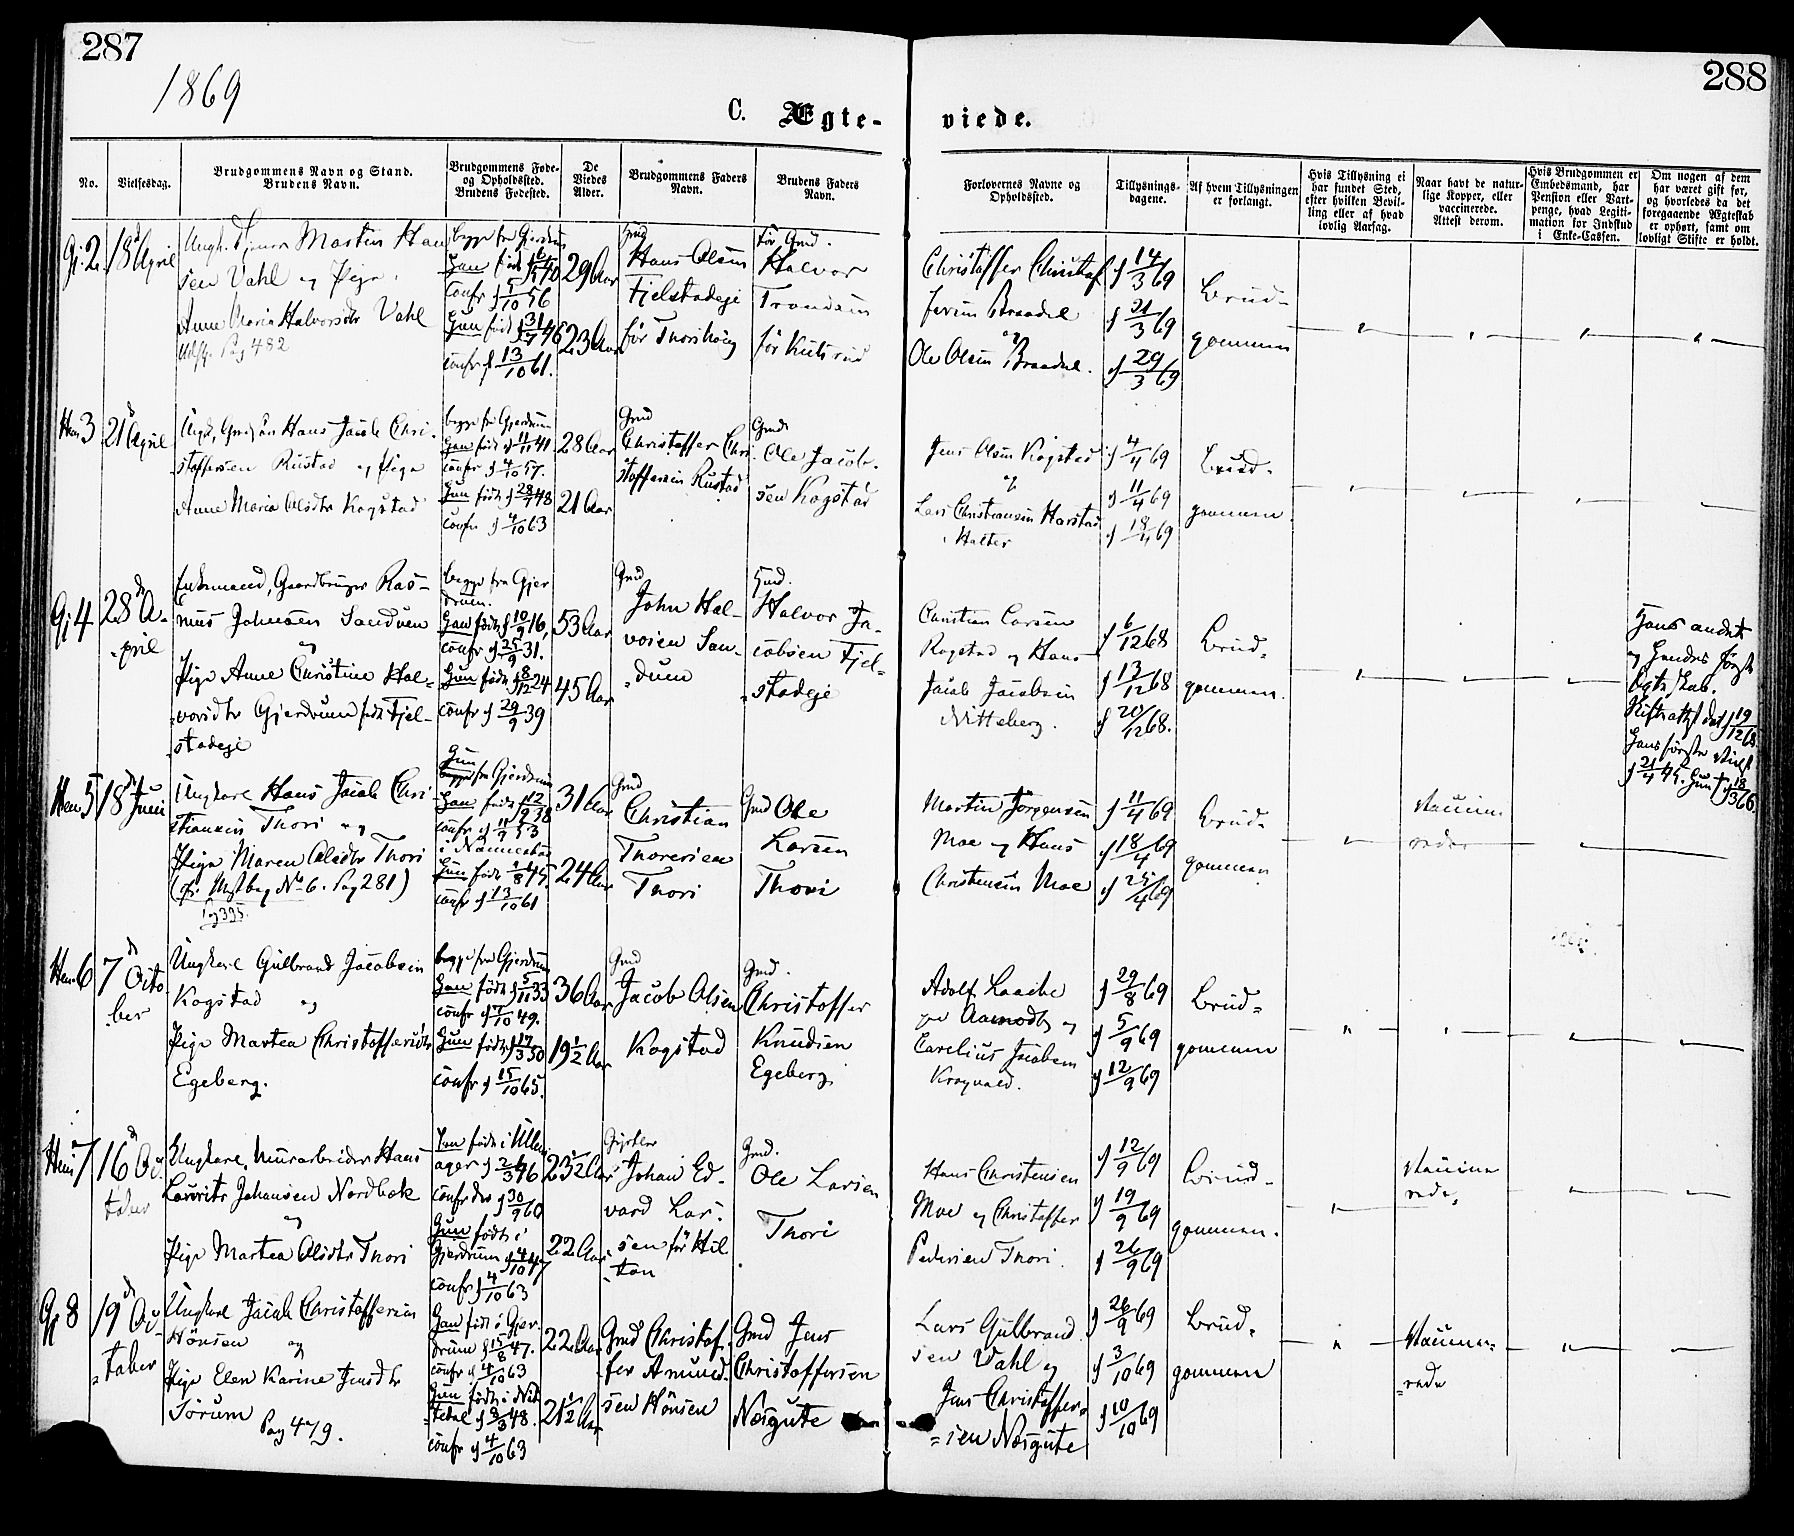 287
288
1869
C. Ægte-
viede.
No.
Vielsesdag.
Brudgommens Navn og Stand.
Brudens Navn.
Brudgommens Føde-
og Opholdssted.
Brudens Fødested.
De
Viedes
Alder.
Brudgommens Faders
Navn.
Brudens Faders
Navn.
Forlovernes Navne og
Opholdssted.
Tillysnings-
dagene.
Af hvem Tillysningen
er forlangt.
Hvis Tillysning ei
har fundet Sted,
efter hvilken Bevil-
ling eller af hvad
lovlig Aarsag.
Naar havt de natur-
lige Kopper, eller
vaccinerede.
Attest derom.
Hvis Brudgommen er
Embedsmand, har
Pension eller Vart-
penge, hvad Legiti-
mation for Indskud
i Enke-Cassen.
Om nogen af dem
har været gift før,
og hvorledes da det
foregaaende Ægteskab
er ophørt, samt om
lovligt Skifte er holdt.
2 18 April
Martin Han
sen Vahl og Pige
Anne Maria Halvorsdtr Vahl
Pag 482
begge fra Gjerdrum
Han født 40
confr 5/10 56
Hun født 31/7 46
confr 13/10 61.
29 Aar
23 Aar
Hans Olsen
Fjelstadeje
før Thorihoug
før Gmd.
Halvor
Trondsen
før Kulsrud
Christoffer Christof
fersen Braadal
og
Ole Olsen Braadal.
14/3 69
21/3 69
29/3 69
Brud-
gommen
3 21 April
Hans Jacob Chri-
stoffersen Rustad og Pige
Anne Maria Olsdtr Kogstad
begge fra Gjerdrum
Han født 11/11 41
confr 4/10 57.
Hun født 28/1 48
confr 4/10 63
28 Aar
21 Aar
Gmd
Christoffer Chri
stoffersen Rustad
Gmd
Ole Jacob-
sen Kogstad
Jens Olsen Kogstad
og
Lars Christiansen Harstad
4/4 69
11/4 69
18/4 69
Brud-
gommen.
4 28 A-
pril
Enkemand, Gaardbruger Ras-
mus Johnsen Sandum
og
Pige Anne Christine Hal-
vorsdtr Gjerdrum født Fjel-
stadeje
begge fra Gjer
drum.
Han født 10/9 16,
confr 25/9 31.
Hun født 8/12 24
confr 29/9 39
53 Aar
45 Aar
Gmd
John Hal-
vorsen San-
dum
Halvor Ja-
cobsen Fjel-
stadeje
Christian Larsen
Kogstad og Hans
Jacob Jacobsen
Nitteberg.
6/12 68
13/12 68
20/12 68.
Brud-
gommen.
Hans andet
og Hendes første
Ægteskab.
Skifteattest dat 19/12 68
5 18 Juni
Ungkarl Hans Jacob Chri-
stiansen Thori og
Pige Maren Olsdtr Thori
No 6. Pag 281)
Hun
fra Gjerdrum
Han født 12/2 38
confr 11/9 53
i Nannestad
Hun født 1/8 45.
confr 13/10 61
31 Aar
24 Aar
Gmd
Christian
Thoresen
Thori
Gmd Ole
Larsen
Thori
Martin Jørgensen
Moe og Hans
Christensen Moe
11/4 69
18/4 69
25/4 69
Brud-
gommen
6 7 Octo
ber
Ungkarl Gulbrand Jacobsen
Kogstad og
Pige Martea Christoffersdtr
Egeberg.
begge fra Gjerdrum
Han født 5/11 33
confr 7/10 49.
Hun født 17/3 50
confr 15/10 65.
36 Aar
19 1/2 Aar
Gmd
Jacob Olsen
Kogstad
Gmd.
Christoffer
Knudsen
Egeberg
Adolf Laache
og
Carelius Jacobsen
Krogvald.
29/8 69
5/9 69
12/9 69
Brud-
gommen
7 16 Oc-
tober
Ungkarl, Murarbeider Hans
Lauritz Johansen Nordbæk
og
Pige Martea Olsdtr Thori
Han født i Ullens
ager 2/3 46
confr 30/9 60
Hun født i
Gjerdrum 4/10 47
confr 4/10 63
23 1/2 Aar
22 Aar
Johan Ed-
vard Lar-
sen før Hil-
ton
Gmd.
Ole Larsen
Thori
Hans Christensen
Moe og Christoffer
Pedersen Thori
12/9 69
19/9 69
26/9 69
Brud-
gommen.
Vaccine
rede,
8 19 Oc-
tober
Ungkarl Jacob Christoffersen
Hønsen og
Pige Elen Karine Jensdtr
Sørum Pag 479.
Han født i Gjer-
drum 15/8 47.
confr 4/10 63
Hun født i Nit-
tedal 8/3 48.
confr 4/10 63
22 Aar
21 1/2 Aar
Gmd Christof-
fer Amund-
sen Hønsen
Gmd Jens
Christoffersen
Næsgute
Lars Gulbrand
sen Vahl og
Jens Christoffer-
sen Næsgute
26/9 69
3/10 69
10/10 69
Brud-
gommen
Vaccine-
rede